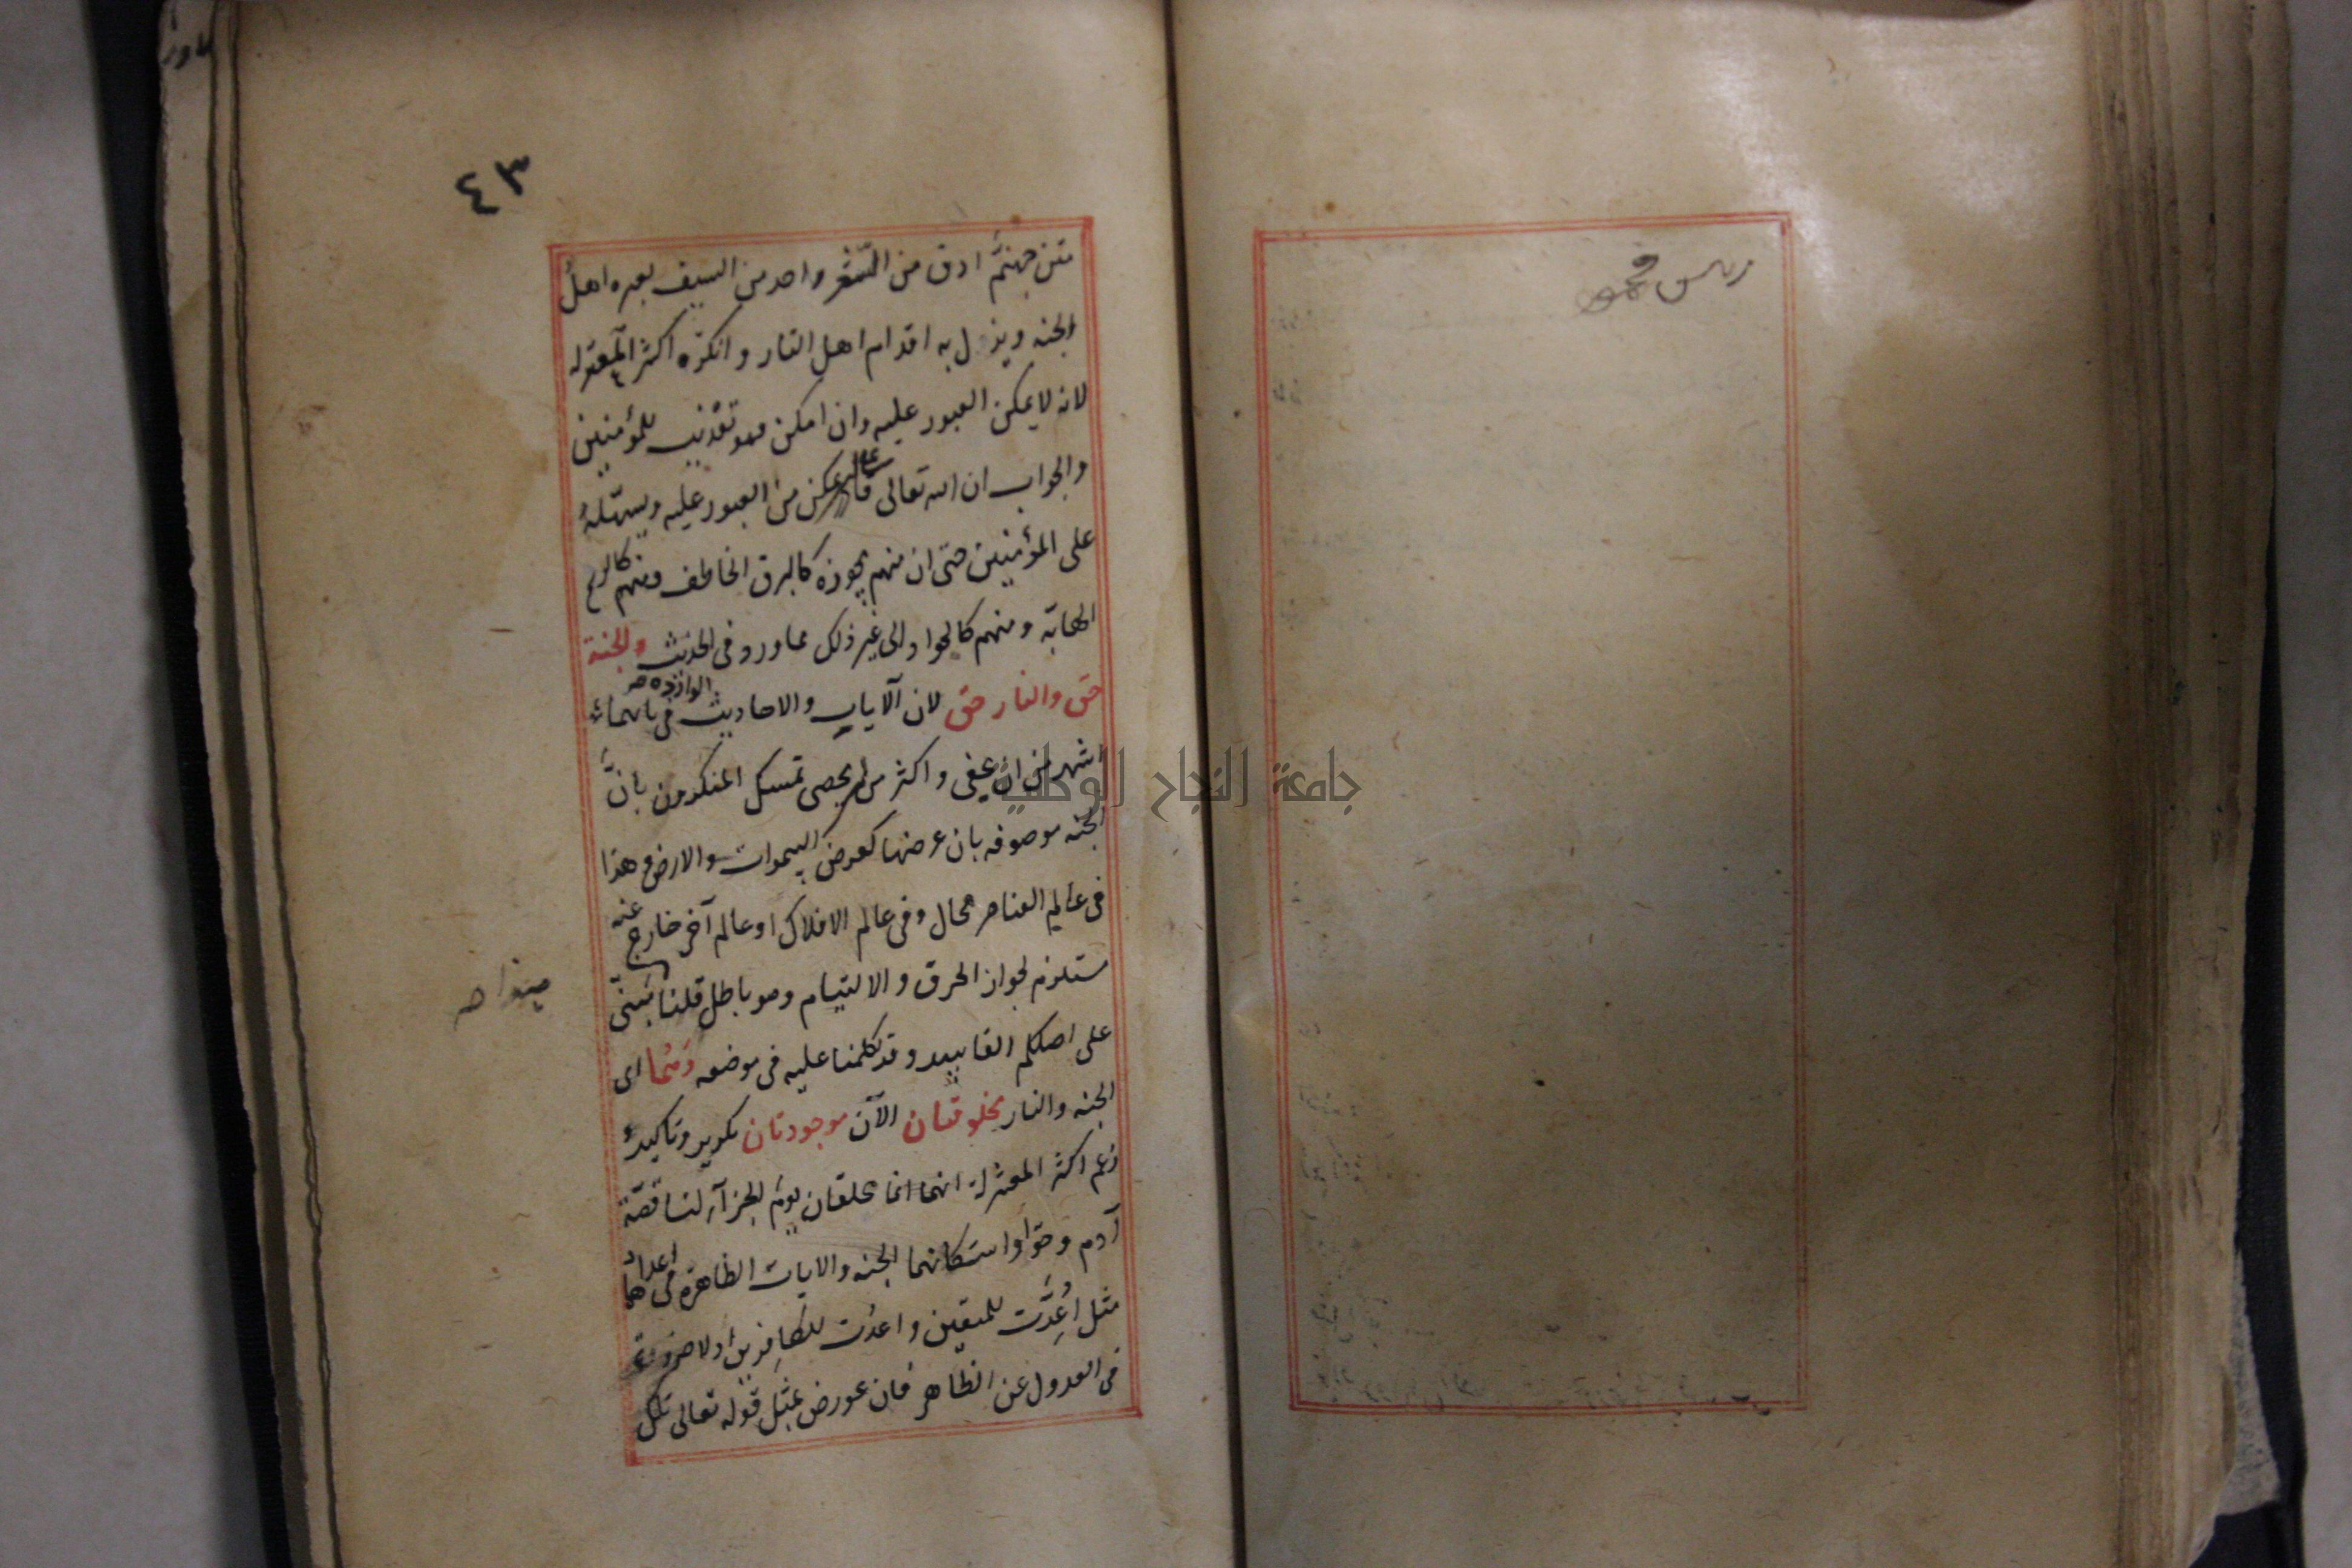 ٤٣
متن جهنم ادق من الشعر واحد من السيف يعبره اهل
الجنه ويزل به اقدام اهل النار وانكره اكثر المعتزله
لانه لا يمكن العبور عليه وان امكن فهو تعذيب للمؤمنين
والجواب ان الله تعالى قادر على ان يمكن من العبور عليه ويسهله
على المؤمنين حتى ان منهم يجوزه كالبرق الخاطف ومنهم كالريح
الهابة ومنهم كالجواد الى غير ذلك مما ورد فى الحديث والجنة
حق والنار حق لان الآيات والاحاديث الواردة فى
اشهر من ان يخفى واكثر من ان يحصى تمسك المنكرون بان
الجنه موصوفه بان عرضها كعرض السموات والارض وهذا
فى عالم العناصر محال وفى عالم الافلاك او عالم آخر خارج عنه
مستلزم لجواز الخرق والالتيام وهو باطل قلنا مبنى
على اصلكم الفاسد وقد تكلمنا عليه فى موضعه وهما اى
الجنه والنار مخلوقتان الآن موجودتان تكرير وتاكيد
زعم اكثر المعتزلة انهما انما تخلقان يوم الجزآء لنا قصة
آدم وحوا واسكانهما الجنه والايات الظاهرة فى اعدادهما
مثل اُعِدَّت للمتقين واعدت للكافرين اذ لا ضرورة
فى العدول عن الظاهر فان عورض بمثل قوله تعالى تلك
جامعة النجاح الوطنية